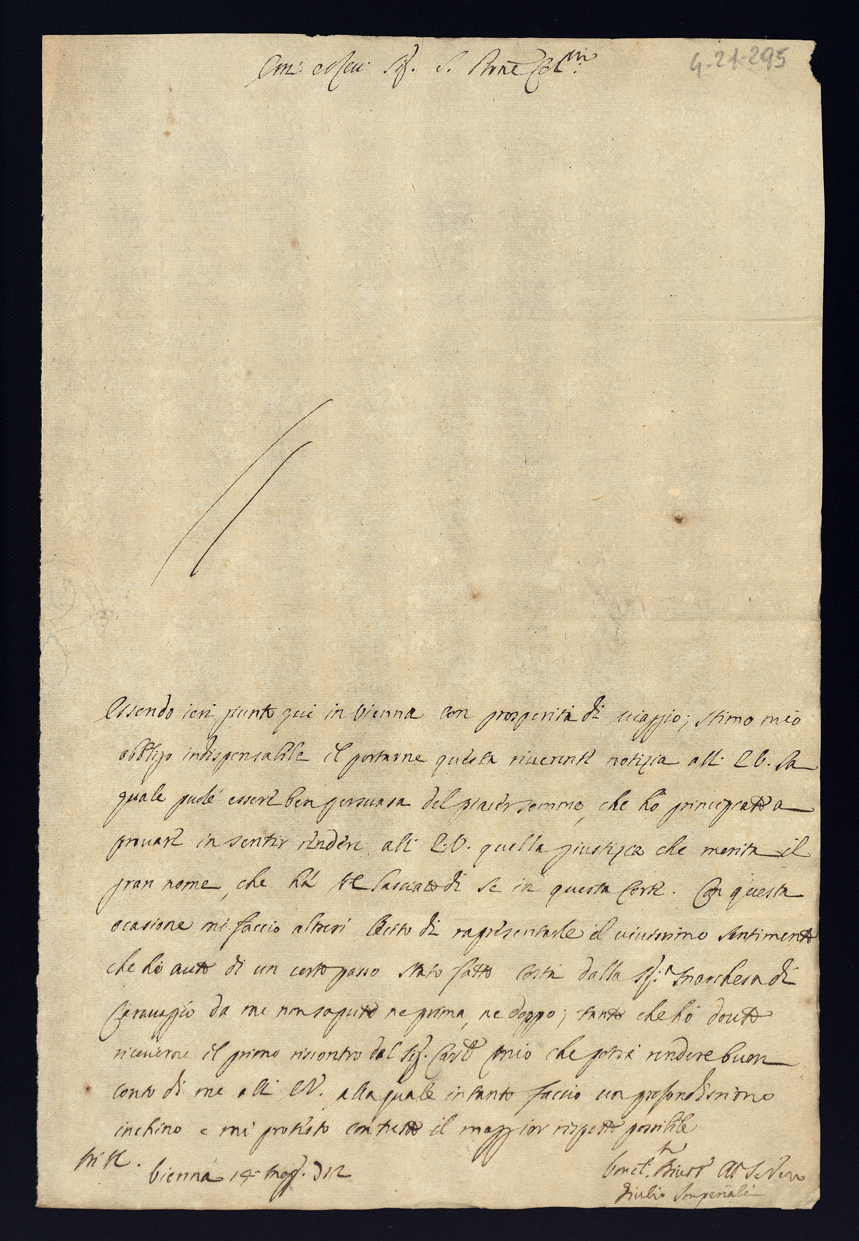 4-21-295
Em: e Rev: Sig. S. Prone Col.mo
Essendo ieri giunto qui in Vienna con prosperità di viaggio; stimo mio
obbligo indispensabile il portarne questa riverente notizia all' E.V. la
quale può essere ben persuasa del piacer sommo, che hò principiatto a
provare in sentir rendere all' E.V. quella giustizia che merita il
gran nome, che hà lasciatto di se in questa Corte. Con questa
ocasione mi faccio altresì lecito di rapresentarle il vivissimo sentimento
che hò auto di un certo passo stato fatto costì dalla Sig.a Marchesa di
Caravaggio da me non saputo ne prima, ne doppo; tanto che hò douto
riceverne il primo riscontro dal Sig. Card. mio che potrà rendere buon
conto di me all' E.V. alla quale intanto faccio un profondissimo
inchino e mi protesto con tutto il maggior rispetto possibile
Vienna 14 Mag. 712
Giulio Imperiali